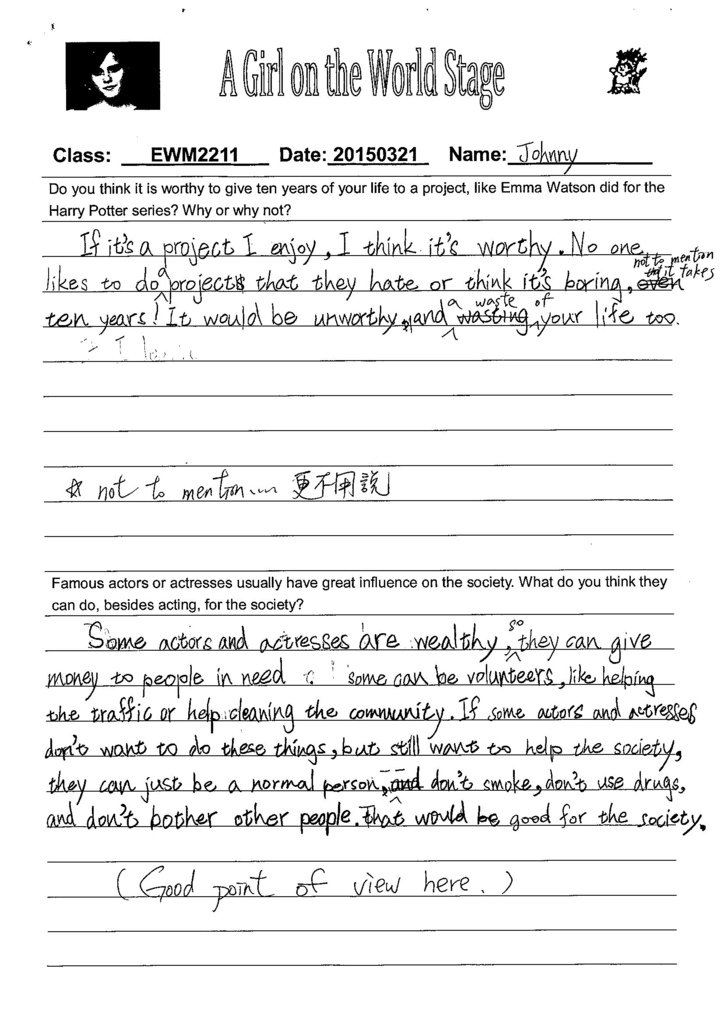 A Girl on the World Stage
Class: EWM2211 Date: 20150321 Name: Johnny
Do you think it is worthy to give ten years of your life to a project, like Emma Watson did for the
Harry Potter series? Why or why not?
If it's a project I enjoy, I think it's worthy. No one
not to mention
likes to do a projects that they hate or think it's boring, even it takes
ten years! It would be unworthy, and a waste of wasting your life too.
☆ not to mention.... 更不用說
Famous actors or actresses usually have great influence on the society. What do you think they
can do, besides acting, for the society?
Some actors and actresses are wealthy, so they can give
money to people in need. some can be volunteers, like helping
the traffic or help cleaning the community. If some actors and actresses
don't want to do these things, but still want to help the society,
they can just be a normal person, and don't smoke, don't use drugs,
and don't bother other people. That would be good for the society.
(Good point of view here.)